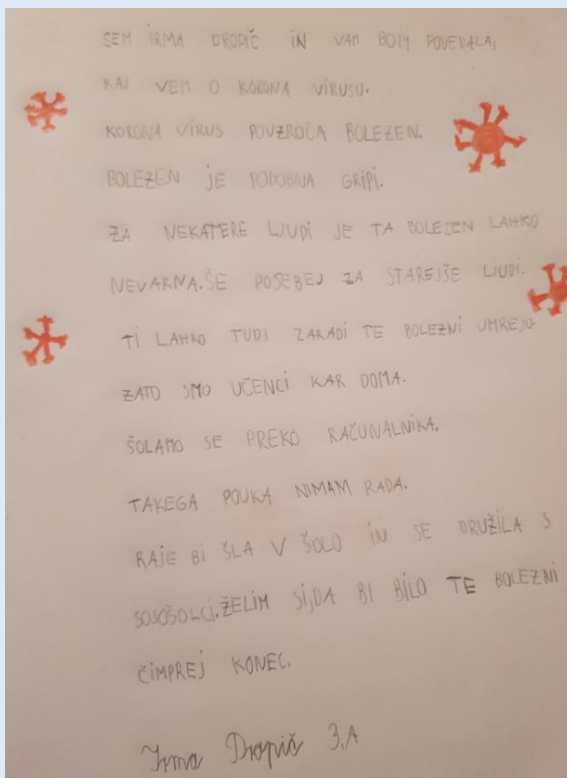 SEM IRMA DROPIČ IN VAM BOM POVEDALA,
KAJ VEM O KORONA VIRUSU.
KORONA VIRUS POVZROČA BOLEZEN.
BOLEZEN JE PODOBNA GRIPI.
ZA NEKATERE LJUDI JE TA BOLEZEN LAHKO
NEVARNA. ŠE POSEBEJ ZA STAREJŠE LJUDI.
TI LAHKO TUDI ZARADI TE BOLEZNI UMREJO
ZATO SMO UČENCI KAR DOMA.
ŠOLAMO SE PREKO RAČUNALNIKA.
TAKEGA POUKA NIMAM RADA.
RAJE BI ŠLA V ŠOLO IN SE DRUŽILA S
SOSOŠOLCI. ŽELIM SI, DA BI BILO TE BOLEZNI
ČIMPREJ KONEC.
Irma Dropič 3.A